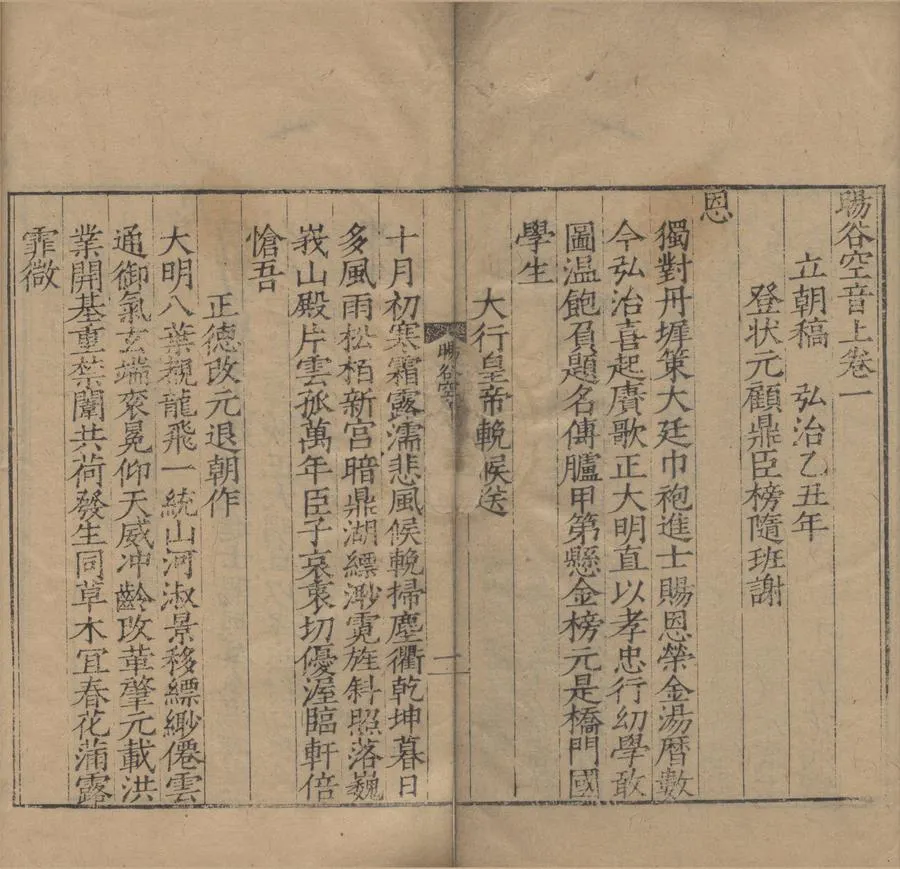 暘谷空音上卷一
立朝稿 弘治乙丑年
登狀元顧鼎臣榜隨班謝
恩
獨對丹墀策大廷巾袍進士賜恩榮金湯曆數
今弘治喜起賡歌正大明直以孝忠行幼學敢
圖温飽負題名傳臚甲第懸金榜元是橋門國
學生
大行皇帝輓候送
十月初寒霜露濡悲風候輓掃塵衢乾坤暮日
多風雨松栢新宮暗鼎湖縹渺霓旌斜照落巍
峩山殿片雲孤萬年臣子哀衷切優渥臨軒倍
愴吾
正德改元退朝作
大明八葉覩龍飛一統山河淑景移縹緲僊雲
通御氣玄端衮冕仰天威冲齡改革肇元載洪
業開基重禁闈共荷發生同草木宜春花蒲露
霏微
暘谷空
一